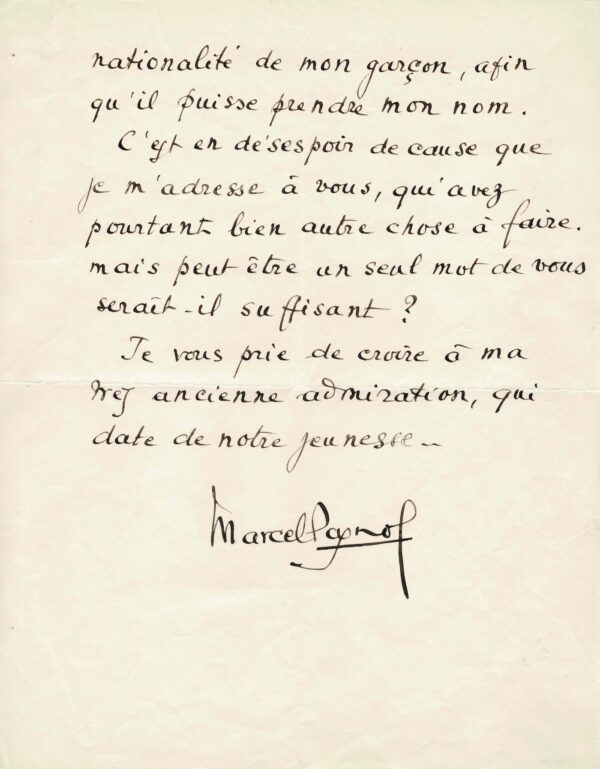 nationalité de mon garçon, afin
qu'il puisse prendre mon nom.
C'est en désespoir de cause que
je m'adresse à vous, qui avez
pourtant bien autre chose à faire.
mais peut être un seul mot de vous
serait-il suffisant ?
Je vous prie de croire à ma
très ancienne admiration, qui
date de notre jeunesse –
Marcel Pagnol